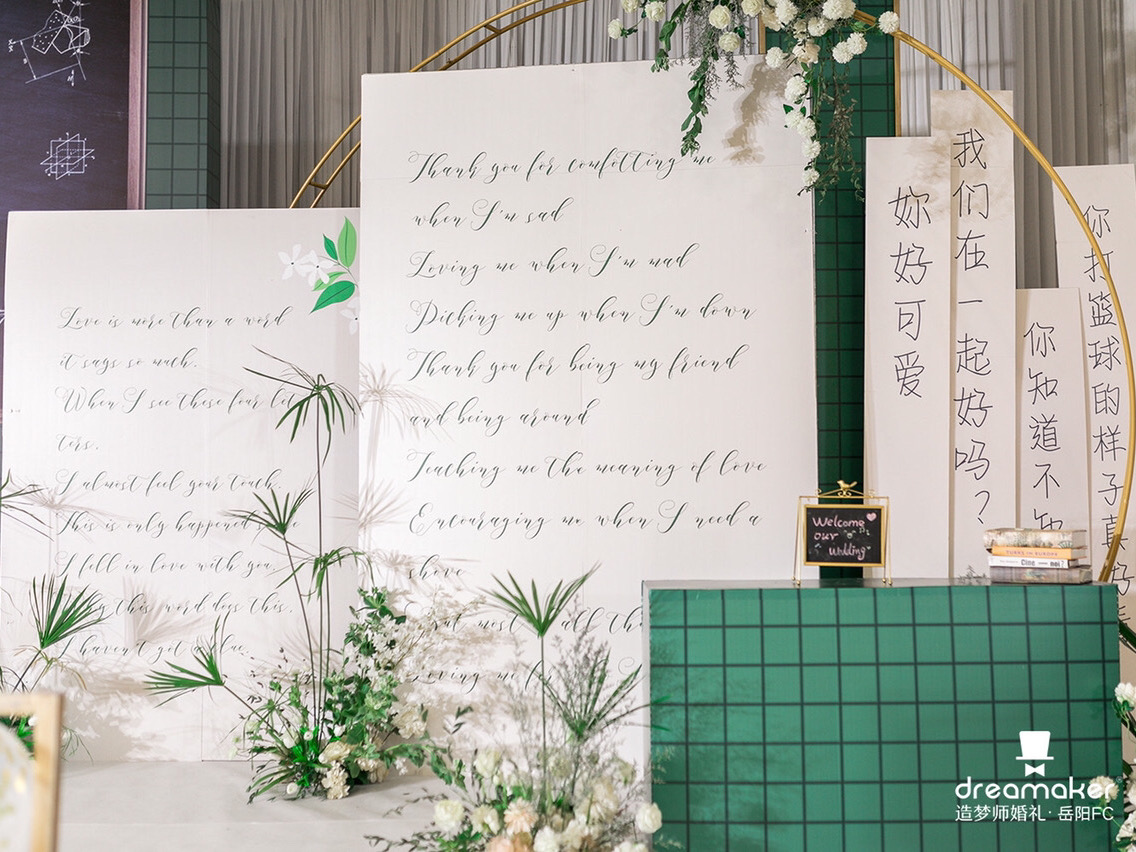 Love is more than a word
it says so much.
When I see these four let
ters.
I almost feel your touch.
This is only happened
I fell in love with you.
this word does this.
I haven't got a clue.
Thank you for comfotting me
when I'm sad
Loving me when I'm mad
Picking me up when I'm down
Thank you for being my friend
and being around
Teaching me the meaning of love
Encouraging me when I need a
shove
But most all th
Loving me f
妳好可爱
我们在一起好吗?
你知道不知
你打篮球的样子真好
Welcome
our
wedding
dreamaker
造梦师婚礼·岳阳FC